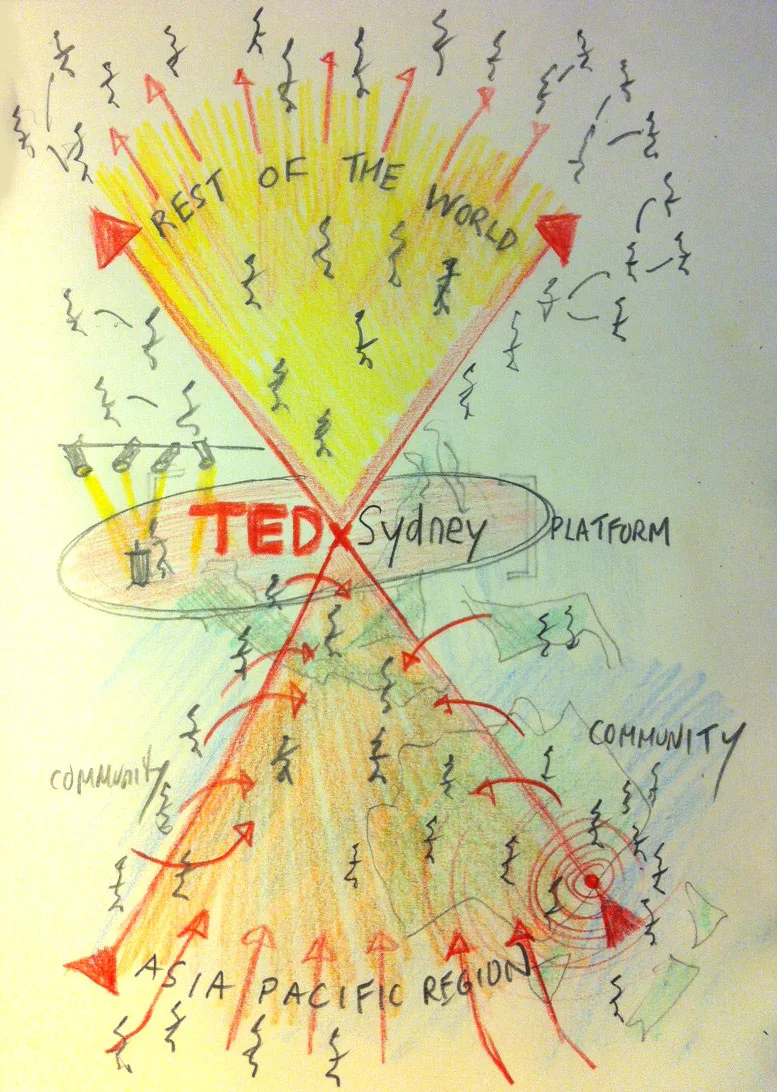 REST OF THE WORLD
TEDxSydney
PLATFORM
COMMUNITY
COMMUNITY
ASIA PACIFIC REGION